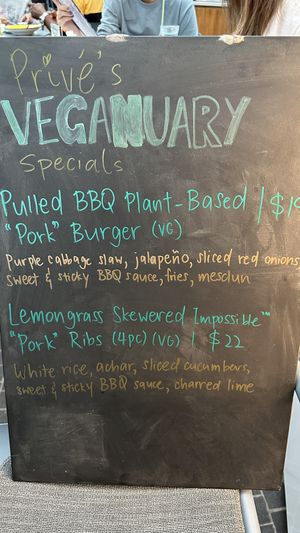 Privé's
VEGANUARY
Specials
Pulled BBQ Plant-Based | $
"Pork" Burger (VG)
Purple cabbage slaw, jalapeño, sliced red onions,
sweet & sticky BBQ sauce, fries, mesclun
Lemongrass Skewered Impossible™
"Pork" Ribs (4pc) (VG) | $22
White rice, achar, sliced cucumbers,
sweet & sticky BBQ sauce, charred lime